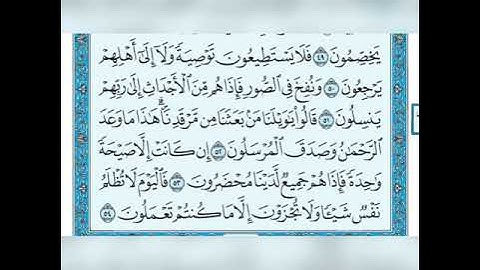 يَخِصِّمُونَ ٤٩ فَلَا يَسْتَطِيعُونَ تَوْصِيَةً وَلَآ إِلَىٰٓ أَهْلِهِمْ
يَرْجِعُونَ ٥٠ وَنُفِخَ فِي ٱلصُّورِ فَإِذَا هُم مِّنَ ٱلْأَجْدَاثِ إِلَىٰ رَبِّهِمْ
يَنسِلُونَ ٥١ قَالُوا۟ يَٰوَيْلَنَا مَنۢ بَعَثَنَا مِن مَّرْقَدِنَا ۜ هَٰذَا مَا وَعَدَ
ٱلرَّحْمَٰنُ وَصَدَقَ ٱلْمُرْسَلُونَ ٥٢ إِن كَانَتْ إِلَّا صَيْحَةً
وَٰحِدَةً فَإِذَا هُمْ جَمِيعٌ لَّدَيْنَا مُحْضَرُونَ ٥٣ فَٱلْيَوْمَ لَا تُظْلَمُ
نَفْسٌ شَيْـًٔا وَلَا تُجْزَوْنَ إِلَّا مَا كُنتُمْ تَعْمَلُونَ ٥٤